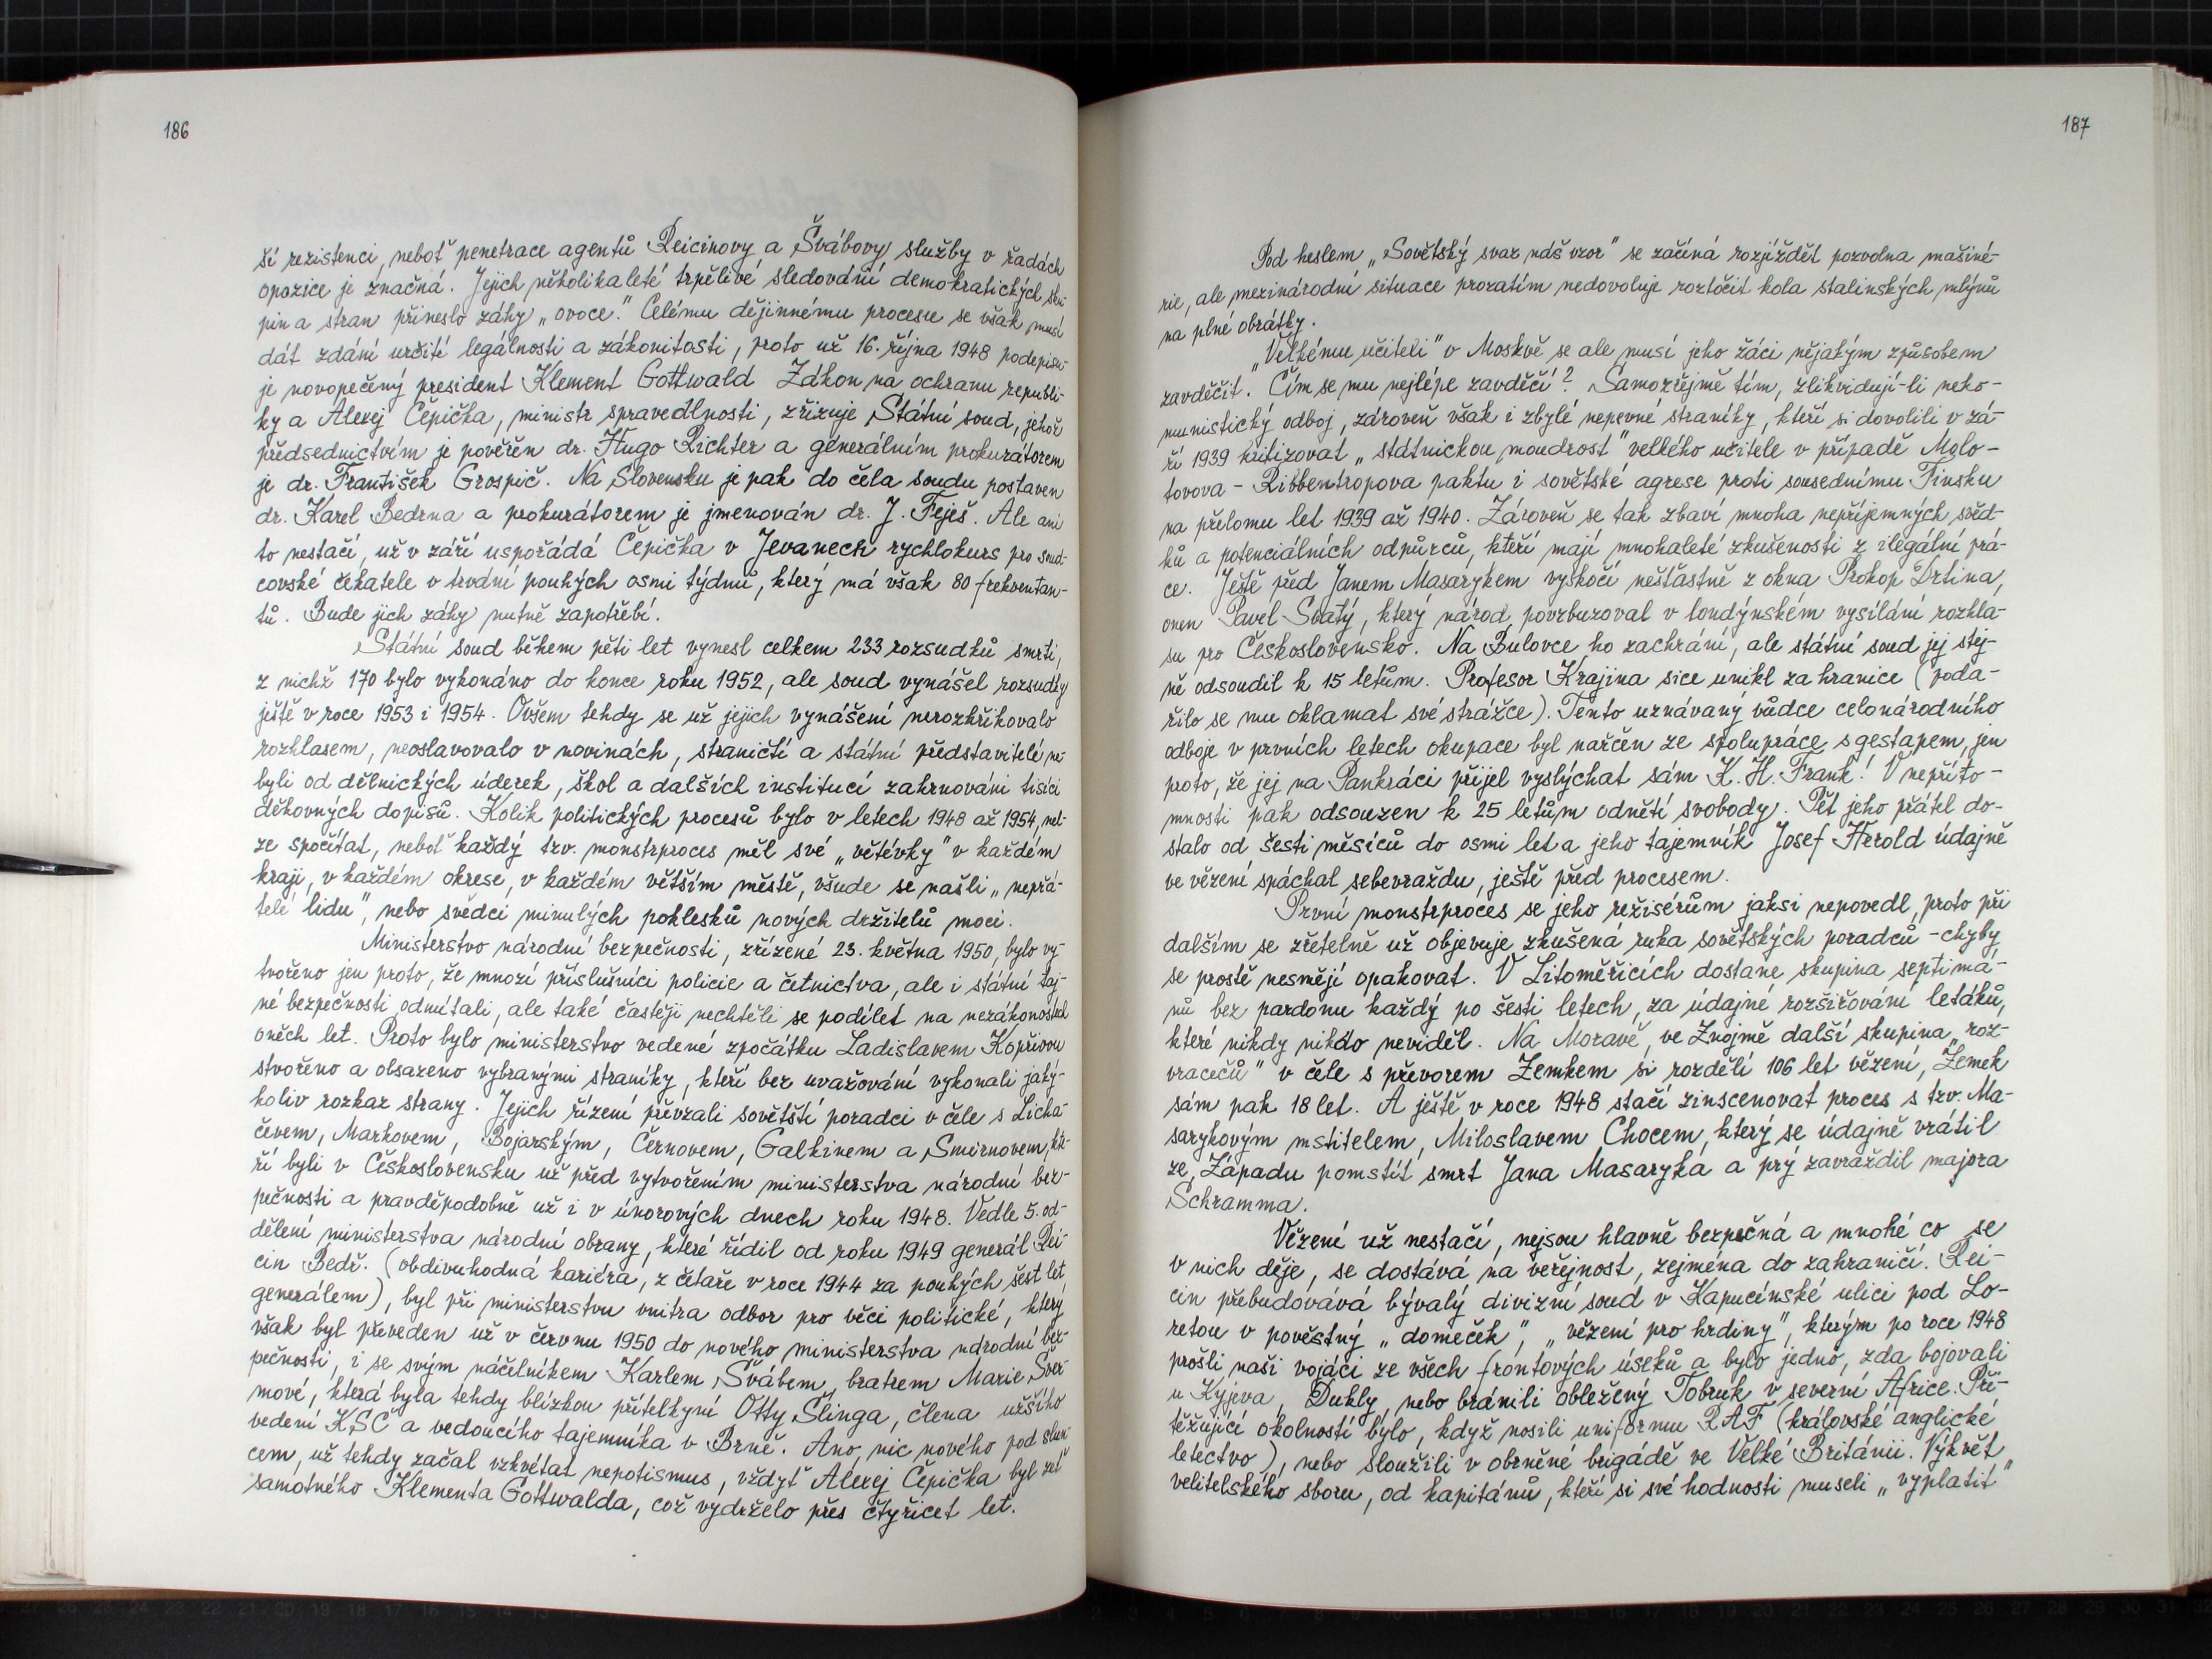 186
ší rezistenci, neboť penetrace agentů Reicinovy a Švábovy služby v řadách
opozice je značná. Jejich několikaleté trpělivé sledování demokratických sku-
pin a stran přineslo záhy „ovoce". Celému dějinnému procesu se však musí
dát zdání určité legálnosti a zákonitosti, proto už 16. října 1948 podepisu-
je novopečený president Klement Gottwald Zákon na ochranu republi-
ky a Alexej Čepička, ministr spravedlnosti, zřizuje Státní soud, jehož
předsednictvím je pověřen dr. Hugo Richter a generálním prokurátorem
je dr. František Grospič. Na Slovensku je pak do čela soudu postaven
dr. Karel Bedrna a prokurátorem je jmenován dr. J. Feješ. Ale ani
to nestačí, už v září uspořádá Čepička v Jevanech rychlokurs pro soud-
covské čekatele v trvání pouhých osmi týdnů, který má však 80 frekventan-
tů. Bude jich záhy nutně zapotřebí.
Státní soud během pěti let vynesl celkem 233 rozsudků smrti,
z nichž 170 bylo vykonáno do konce roku 1952, ale soud vynášel rozsudky
ještě v roce 1953 i 1954. Ovšem tehdy se už jejich vynášení nerozkřikovalo
rozhlasem, neoslavovalo v novinách, straničtí a státní představitelé ne-
byli od dělnických úderek, škol a dalších institucí zahrnováni tisíci
děkovných dopisů. Kolik politických procesů bylo v letech 1948 až 1954, nel-
ze spočítat, neboť každý tzv. monstrproces měl své „větévky" v každém
kraji, v každém okrese, v každém větším městě, všude se našli „nepřá-
telé lidu", nebo svědci minulých poklesků nových držitelů moci.
Ministerstvo národní bezpečnosti, zřízené 23. května 1950, bylo vy-
tvořeno jen proto, že mnozí příslušníci policie a četnictva, ale i státní taj-
né bezpečnosti odmítali, ale také častěji nechtěli se podílet na nezákonostech
oněch let. Proto bylo ministerstvo vedené zpočátku Ladislavem Kopřivou
stvořeno a obsazeno vybranými straníky, kteří bez uvažování vykonali jaký-
koliv rozkaz strany. Jejich řízení převzali sovětští poradci v čele s Licha-
čevem, Markovem, Bojarským, Černovem, Galkinem a Smirnovem, kte-
ří byli v Československu už před vytvořením ministerstva národní bez-
pečnosti a pravděpodobně už i v únorových dnech roku 1948. Vedle 5. od-
dělení ministerstva národní obrany, které řídil od roku 1949 generál Rei-
cin Bedř. (obdivuhodná kariéra, z četaře v roce 1944 za pouhých šest let
generálem), byl při ministerstvu vnitra odbor pro věci politické, který
však byl převeden už v červnu 1950 do nového ministerstva národní bez-
pečnosti, i se svým náčelníkem Karlem Švábem, bratrem Marie Šver-
mové, která byla tehdy blízkou přítelkyní Otty Šlinga, člena užšího
vedení KSČ a vedoucího tajemníka v Brně. Ano, nic nového pod slun-
cem, už tehdy začal vzkvétat nepotismus, vždyť Alexej Čepička byl zeť
samotného Klementa Gottwalda, což vydrželo přes čtyřicet let.
187
Pod heslem „Sovětský svaz náš vzor" se začíná rozjíždět pozvolna mašiné-
rie, ale mezinárodní situace prozatím nedovoluje roztočit kola stalinských mlýnů
na plné obrátky.
„Velkému učiteli" v Moskvě se ale musí jeho žáci nějakým způsobem
zavděčit. Čím se mu nejlépe zavděčí? Samozřejmě tím, zlikvidují-li neko-
munistický odboj, zároveň však i zbylé nepevné straníky, kteří si dovolili v zá-
ří 1939 kritizovat „státnickou moudrost" velkého učitele v případě Molo-
tovova - Ribbentropova paktu i sovětské agrese proti sousednímu Finsku
na přelomu let 1939 až 1940. Zároveň se tak zbaví mnoha nepříjemných svěd-
ků a potenciálních odpůrců, kteří mají mnohaleté zkušenosti z ilegální prá-
ce. Ještě před Janem Masarykem vyskočí nešťastně z okna Prokop Drtina,
onen Pavel Svatý, který národ povzbuzoval v londýnském vysílání rozhla-
su pro Československo. Na Bulovce ho zachrání, ale státní soud jej stej-
ně odsoudil k 15 letům. Profesor Krajina sice unikl za hranice (poda-
řilo se mu oklamat své strážce). Tento uznávaný vůdce celonárodního
odboje v prvních letech okupace byl nařčen ze spolupráce s gestapem, jen
proto, že jej na Pankráci přijel vyslýchat sám K. H. Frank! V nepříto-
mnosti pak odsouzen k 25 letům odnětí svobody. Pět jeho přátel do-
stalo od šesti měsíců do osmi let a jeho tajemník Josef Herold údajně
ve vězení spáchal sebevraždu, ještě před procesem.
První monstrproces se jeho režisérům jaksi nepovedl, proto při
dalším se zřetelně už objevuje zkušená ruka sovětských poradců - chyby
se prostě nesmějí opakovat. V Litoměřicích dostane skupina septimá-
nů bez pardonu každý po šesti letech, za údajné rozšiřování letáků,
které nikdy nikdo neviděl. Na Moravě, ve Znojmě další skupina „roz-
vracečů" v čele s převorem Zemkem si rozdělí 106 let vězení, Zemek
sám pak 18 let. A ještě v roce 1948 stačí zinscenovat proces s tzv. Ma-
sarykovým mstitelem, Miloslavem Chocem, který se údajně vrátil
ze Západu pomstít smrt Jana Masaryka a prý zavraždil majora
Schramma.
Vězení už nestačí, nejsou hlavně bezpečná a mnohé co se
v nich děje, se dostává na veřejnost, zejména do zahraničí. Rei-
cin přebudovává bývalý divizní soud v Kapucínské ulici pod Lo-
retou v pověstný „domeček", „vězení pro hrdiny", kterým po roce 1948
prošli naši vojáci ze všech frontových úseků a bylo jedno, zda bojovali
u Kyjeva, Dukly, nebo bránili obležený Tobruk v severní Africe. Při-
těžující okolností bylo, když nosili uniformu RAF (královské anglické
letectvo), nebo sloužili v obrněné brigádě ve Velké Británii. Výkvět
velitelského sboru, od kapitánů, kteří si své hodnosti museli „vyplatit"